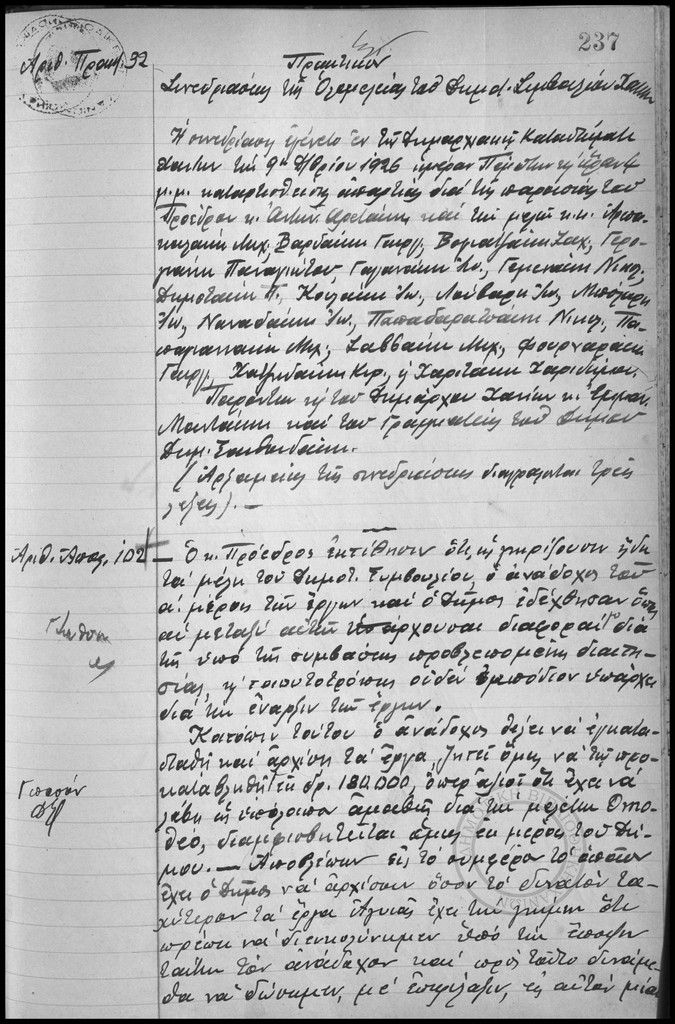 237
Αριθ. Πρακτ. 32
Πρακτικόν
Συνεδριάσεως τῆς Ὁλομελείας τοῦ Δημοτ. Συμβουλίου Χανίων
Ἡ συνεδρίασις ἐγένετο ἐν τῷ Δημαρχιακῷ Καταστήματι
Χανίων τὴν 9ην 1926 ἡμέραν Πέμπτην καὶ ὥραν
μ.μ. καταρτισθείσης ἀπαρτίας διὰ τῆς παρουσίας τοῦ
Προέδρου κ. Ἀντων. καὶ τῶν μελῶν κ.κ.
Μιχ., Βαρδάκη Γεωργ., Βογιατζάκη Ζαχ., Γερο-
γιάννη Παναγιώτου, Γαγανάκη Ἰω., Νικολ.,
Δημοτάκη Π., Ἰω., Λούβαρη Ἰω.,
Ἰω., Ναναδάκη Ἰω., Παπαδαράτσακη Νικολ., Πα-
Μιχ., Σαββάκη Μιχ., Φουρναράκη
Γεωργ., Χατζηδάκη Κυρ., ἢ Χαριτάκη Χαριδήμου.
Παρόντων καὶ τοῦ Δημάρχου Χανίων κ. Ἐμμαν.
Μουντάκη καὶ τοῦ Γραμματέως τοῦ Δήμου
Δημ. Ξανθουδάκη.
(Ἀρξαμένης τῆς συνεδριάσεως διαγράφονται τρεῖς
λέξεις). —
Ἀριθ. Ἀποφ. 102
— Ὁ κ. Πρόεδρος ἐκτίθησιν ὅτι, ὡς γνωρίζουσιν ἤδη
τὰ μέλη τοῦ Δημοτ. Συμβουλίου, ὁ ἀνάδοχος τοῦ
α΄. μέρους τῶν ἔργων καὶ ὁ Δῆμος ἐδέχθησαν ὅπως
αἱ μεταξὺ αὐτῶν ὑπάρχουσαι διαφοραὶ διὰ
τῆς ὑπὸ τῆς συμβάσεως προβλεπομένης διαιτη-
σίας, καὶ τοιουτοτρόπως οὐδὲν ἐμπόδιον ὑπάρχει
διὰ τὴν ἔναρξιν τῶν ἔργων.
Κατόπιν τούτου ὁ ἀνάδοχος θέλει νὰ ἐγκατα-
σταθῇ καὶ ἀρχίσῃ τὰ ἔργα, ζητεῖ ὅμως νὰ τῷ προ-
καταβληθῇ τῶν δρ. 180.000, ὅπερ ἀξιοῖ ὅτι ἔχει νὰ
λάβῃ ὡς ὑπόλοιπον ἀμοιβῆς διὰ τὴν μελέτην
διαμφισβητεῖται ὅμως ἐκ μέρους τοῦ Δή-
μου. — Ἀποβλέπων εἰς τὸ συμφέρον τὸ ὁποῖον
ἔχει ὁ Δῆμος νὰ ἀρχίσουν ὅσον τὸ δυνατὸν τα-
χύτερον τὰ ἔργα Ἁγυιᾶς ἔχει τὴν γνώμην ὅτι
πρέπει νὰ διευκολύνωμεν ὑπὸ τὴν ἔποψιν
ταύτην τὸν ἀνάδοχον καὶ πρὸς τοῦτο δυνάμε-
θα νὰ δώσωμεν, μὲ ἐπιφύλαξιν, εἰς αὐτὸν μίαν